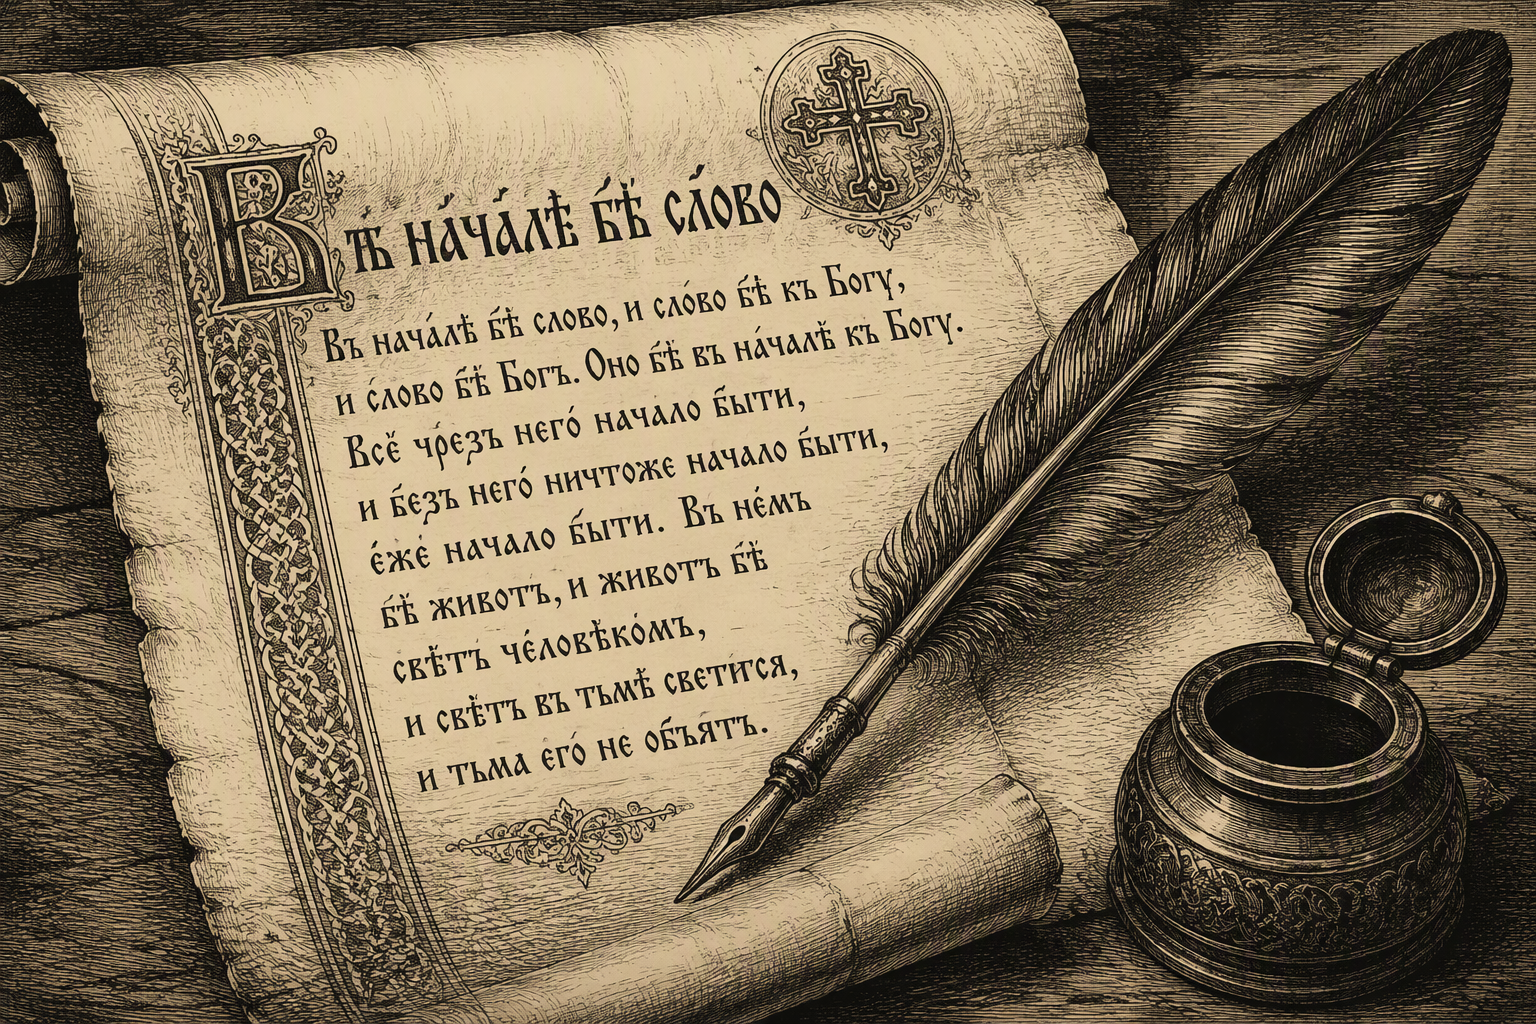 Вѣ нача́лѣ бѣ̀ сло́во
Въ нача́лѣ бѣ̀ слово, и сло́во бѣ̀ къ Богу,
и сло́во бѣ̀ Богъ. Оно бѣ̀ въ на́чалѣ къ Богу.
Все̑ чрезъ него́ начало быти,
и безъ него́ ничтоже начало быти,
е́же начало быти. Въ не́мъ
бѣ̀ животъ, и животъ бѣ̀
свѣ̀тъ че́ловѣко́мъ,
и свѣ̀тъ въ тьмѣ светится,
и тьма его́ не объятъ.